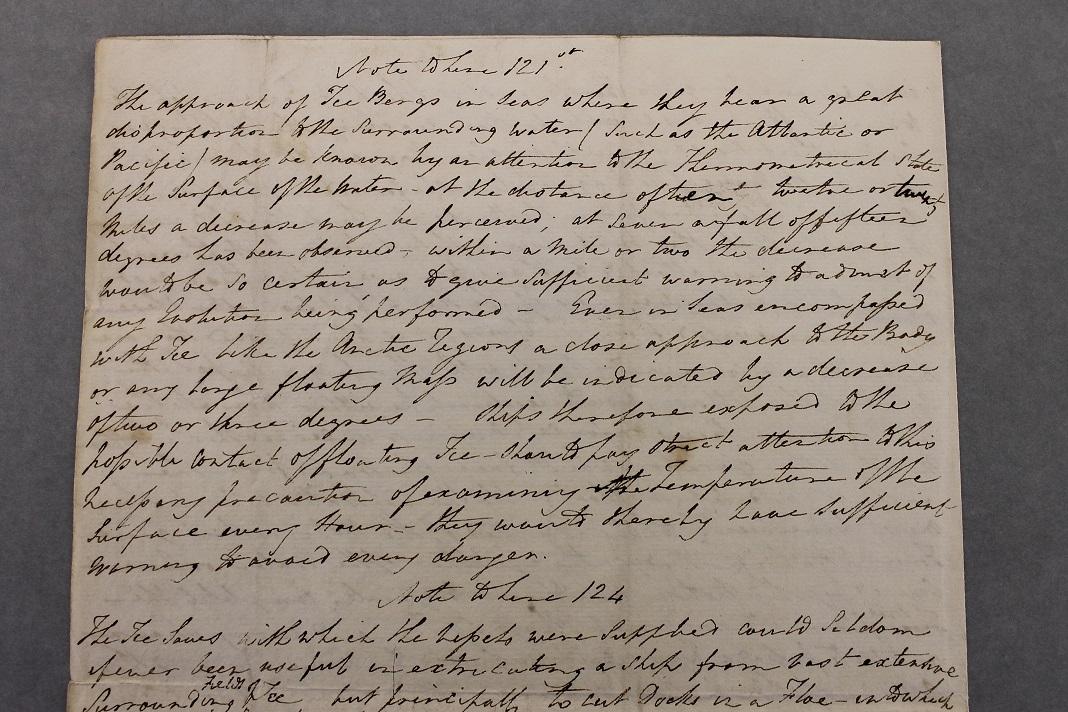 Note to line 121st
The approach of Ice Bergs in Seas where they bear a great
disproportion to the Surrounding Water (Such as the Atlantic or
Pacific) may be known by an attention to the Thermometrical State
of the Surface of the Water - at the distance of twelve or
Miles a decrease may be perceived; at Seven a fall of fifteen
degrees has been observed - within a Mile or two the decrease
would be So certain as to give Sufficient warning to admit of
any Evolution being performed - Even in Seas encompassed
with Ice like the Arctic Regions a close approach to the Body
or any large floating Mass will be indicated by a decrease
of two or three degrees - Ships therefore exposed to the
possible contact of floating Ice - should pay strict attention to this
necessary precaution of examining the Temperature of the
Surface every Hour - they would thereby have Sufficient
warning to avoid every danger.
Note to line 124
The Ice Saws with which the Vessels were Supplied could Seldom
if ever been useful in extricating a Ship from vast extensive
Fields
Surrounding of Ice, but principally to cut Docks in a Floe - into which